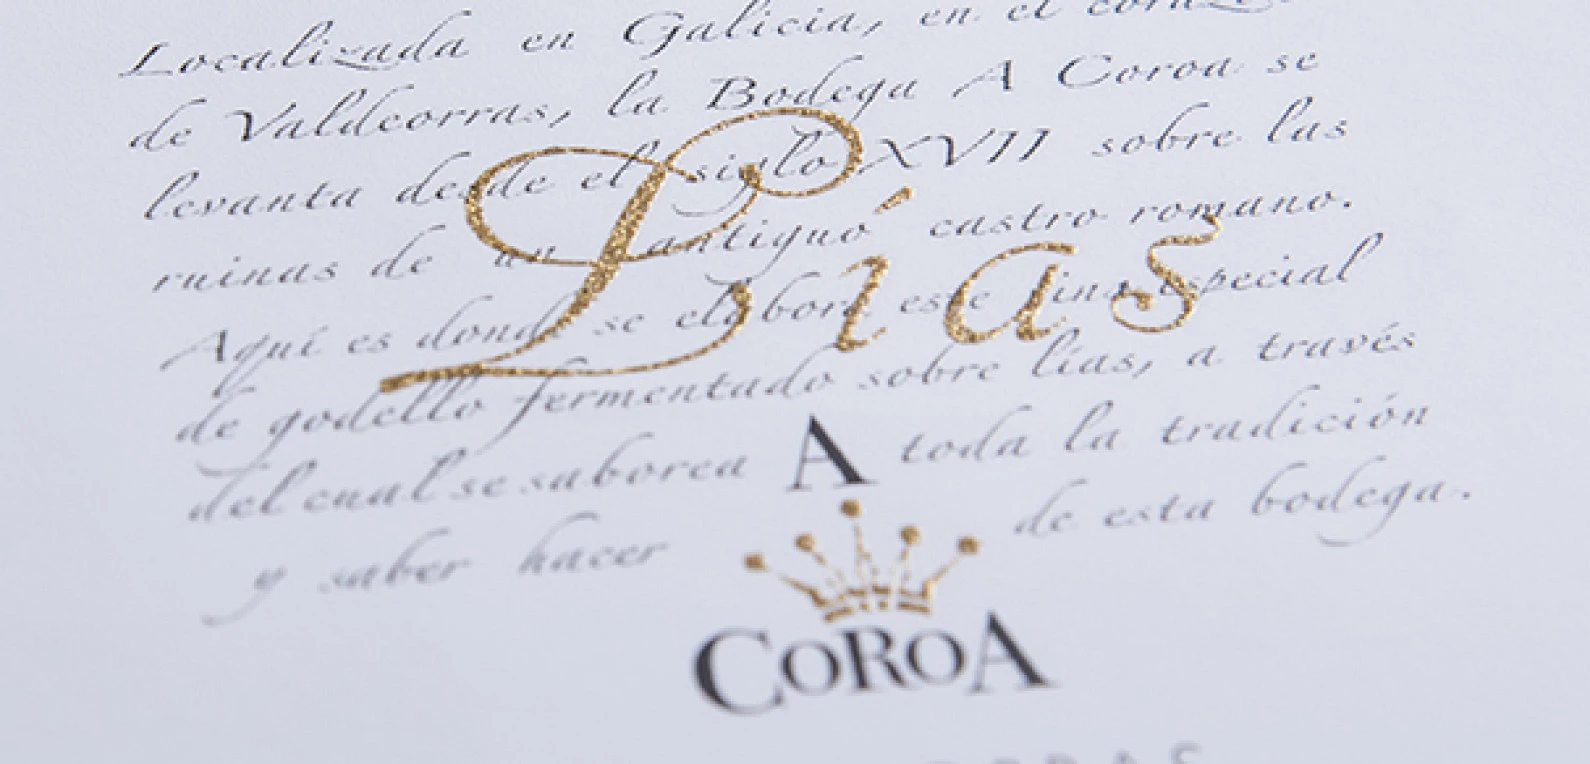 Localizada en Galicia, en el coraz
de Valdeorras, la Bodega A Coroa se
levanta desde el siglo XVII sobre las
ruinas de un antiguo castro romano.
Lías
Aquí es donde se elabora este vino especial
de godello fermentado sobre lías, a través
del cual se saborea toda la tradición
y saber hacer de esta bodega.
A
COROA